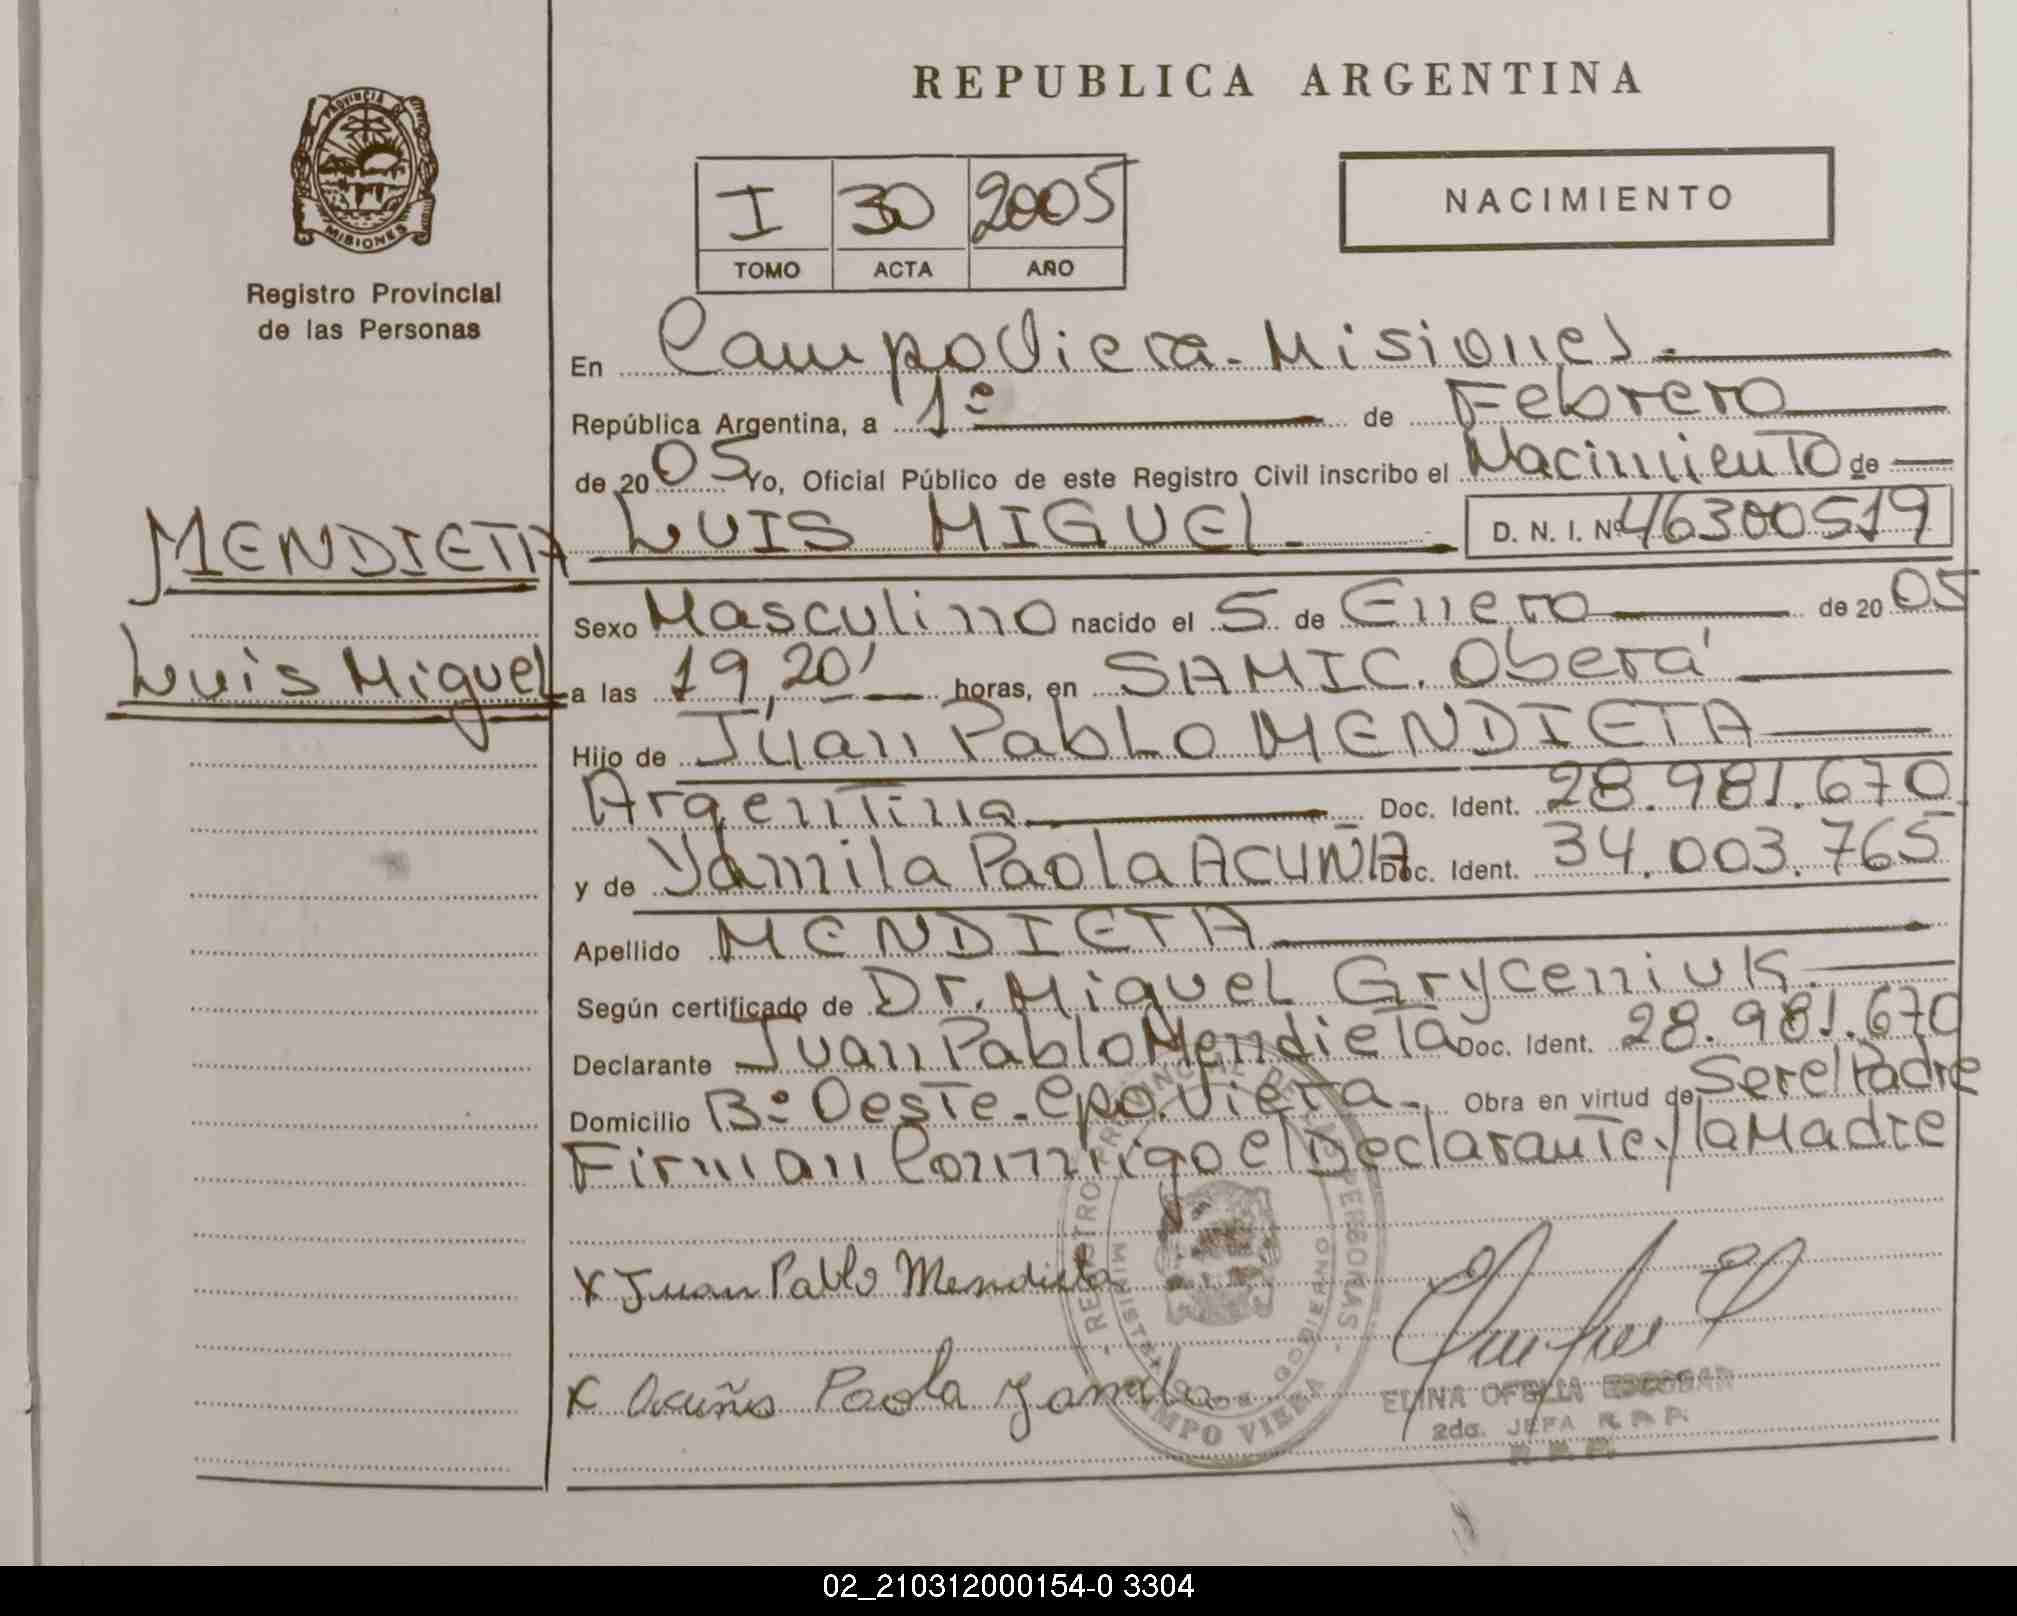 REPUBLICA ARGENTINA
PROVINCIA DE
MISIONES
Registro Provincial
de las Personas
I 30 2005
TOMO ACTA AÑO
NACIMIENTO
En Campo Viera - Misiones.
República Argentina, a 1º de Febrero
de 2005 Yo, Oficial Público de este Registro Civil inscribo el Nacimiento de
MENDIETA LUIS MIGUEL. D. N. I. Nº 46300519
Sexo Masculino nacido el 5 de Enero de 2005
Luis Miguel
a las 19,20' horas, en SAMIC. Oberá
Hijo de Juan Pablo MENDIETA
Argentina Doc. Ident. 28.981.670
y de Yamila Paola ACUÑA Doc. Ident. 34.003.765
Apellido MENDIETA
Según certificado de Dr. Miguel Gryceniuk.
Declarante Juan Pablo Mendieta Doc. Ident. 28.981.670
Domicilio Bº Oeste - Cpo. Viera. Obra en virtud de Ser el Padre
Firman Conmigo el Declarante y la Madre
X Juan Pablo Mendieta
X Acuña Paola Yamila
REGISTRO PROVINCIAL DE LAS PERSONAS
MINISTERIO DE GOBIERNO
CAMPO VIERA
ELINA OFELIA ESCOBAR
2da. JEFA R. P. P.
02_210312000154-0 3304